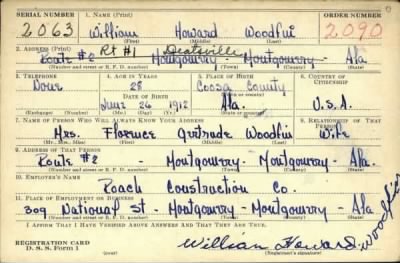 SERIAL NUMBER 1. NAME (Print) ORDER NUMBER
2063 William Howard Woodfin 2090
(First) (Middle) (Last)
2. ADDRESS (Print) Rt #1 Deatsville
Route #2 Montgomery - Montgomery - Ala
(Number and street or R. F. D. number) (Town) (County) (State)
3. TELEPHONE 4. AGE IN YEARS 5. PLACE OF BIRTH 6. COUNTRY OF CITIZENSHIP
None 28 Coosa County
DATE OF BIRTH
June 26 1912 Ala. U.S.A.
(Exchange) (Number) (Mo.) (Day) (Yr.) (State or country)
7. NAME OF PERSON WHO WILL ALWAYS KNOW YOUR ADDRESS 8. RELATIONSHIP OF THAT PERSON
Mrs. Florence Gertrude Woodfin Wife
(Mr., Mrs., Miss) (First) (Middle) (Last)
9. ADDRESS OF THAT PERSON
Route #2 - Montgomery - Montgomery - Ala.
(Number and street or R. F. D. number) (Town) (County) (State)
10. EMPLOYER'S NAME
Roach Construction Co.
11. PLACE OF EMPLOYMENT OR BUSINESS
309 National St - Montgomery - Montgomery - Ala
(Number and street or R. F. D. number) (Town) (County) (State)
I AFFIRM THAT I HAVE VERIFIED ABOVE ANSWERS AND THAT THEY ARE TRUE.
REGISTRATION CARD
D. S. S. Form 1 (over) William Howard Woodfin
(Registrant's signature)